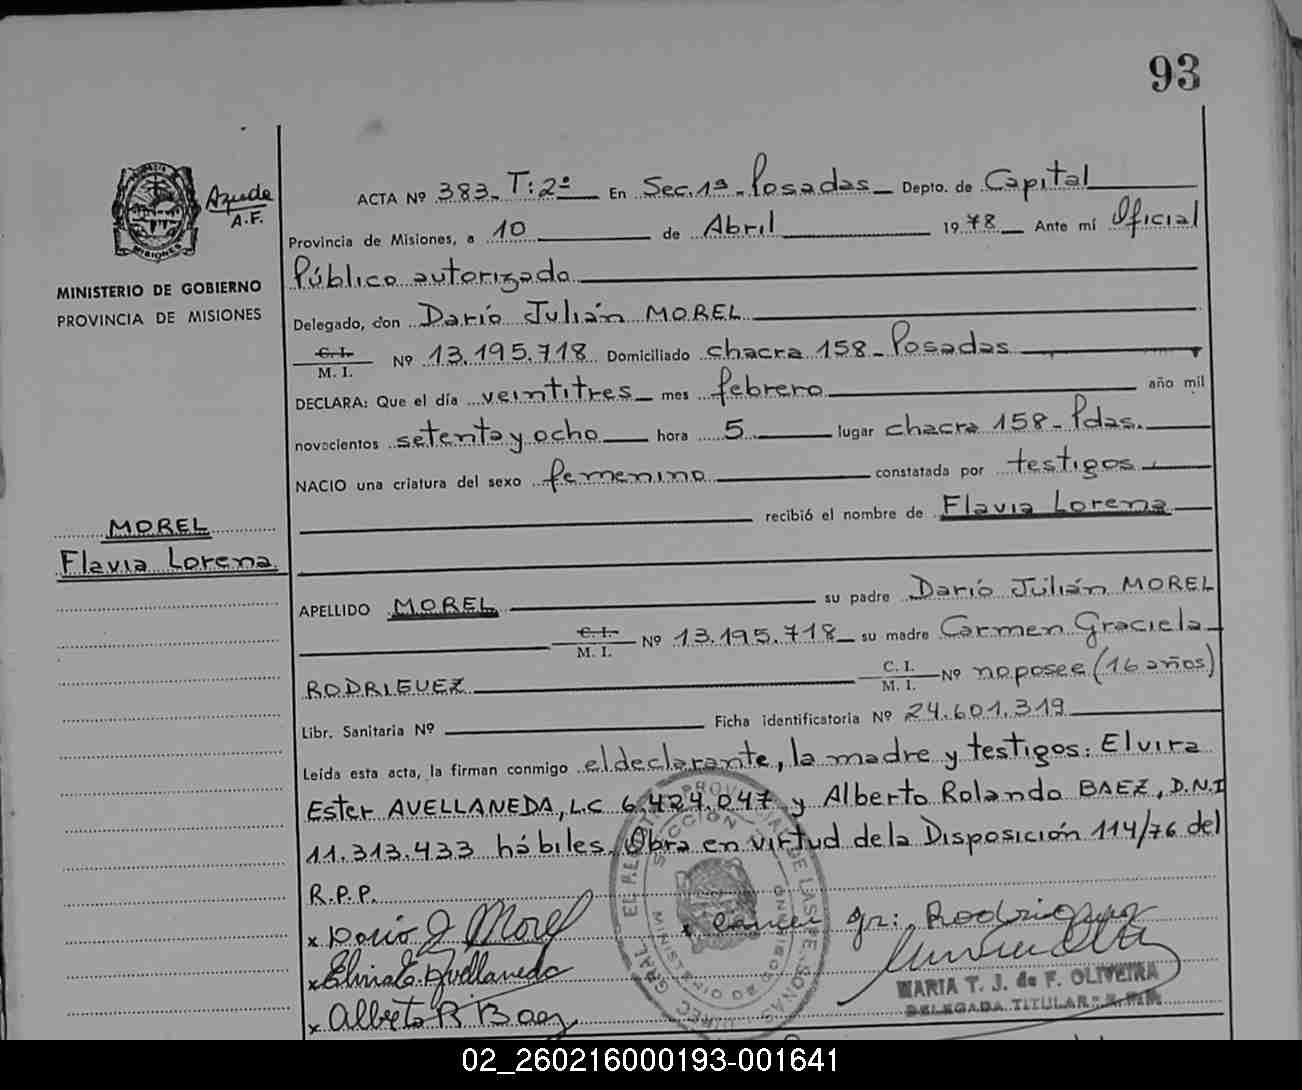 93
Ayuda
A.F.
MINISTERIO DE GOBIERNO
PROVINCIA DE MISIONES
ACTA Nº 383- T: 2º En Sec. 1ª - Posadas Depto. de Capital
Provincia de Misiones, a 10 de Abril 1978 Ante mí Oficial
Público autorizado
Delegado, don Darío Julián MOREL
C. I. / M. I. Nº 13.195.718 Domiciliado chacra 158 - Posadas
DECLARA: Que el día veintitres mes febrero año mil
novecientos setenta y ocho hora 5 lugar chacra 158 - Pdas.
NACIO una criatura del sexo femenino constatada por testigos
recibió el nombre de Flavia Lorena
MOREL
Flavia Lorena
APELLIDO MOREL su padre Darío Julián MOREL
C. I. / M. I. Nº 13.195.718 su madre Carmen Graciela
RODRIGUEZ C. I. / M. I. Nº no posee (16 años)
Libr. Sanitaria Nº Ficha identificatoria Nº 24.601.319
Leída esta acta, la firman conmigo el declarante, la madre y testigos: Elvira
Ester AVELLANEDA, L.C 6.424.047 y Alberto Rolando BAEZ, D.N.I
11.313.433 hábiles. Obra en virtud de la Disposición 114/76 del
R.P.P.
x Dario J Morel x Carmen gr: Rodriguez
x Elvira E. Avellaneda
x Alberto R Baez
MARIA T. J. de F. OLIVEIRA
DELEGADA TITULAR
02_260216000193-001641